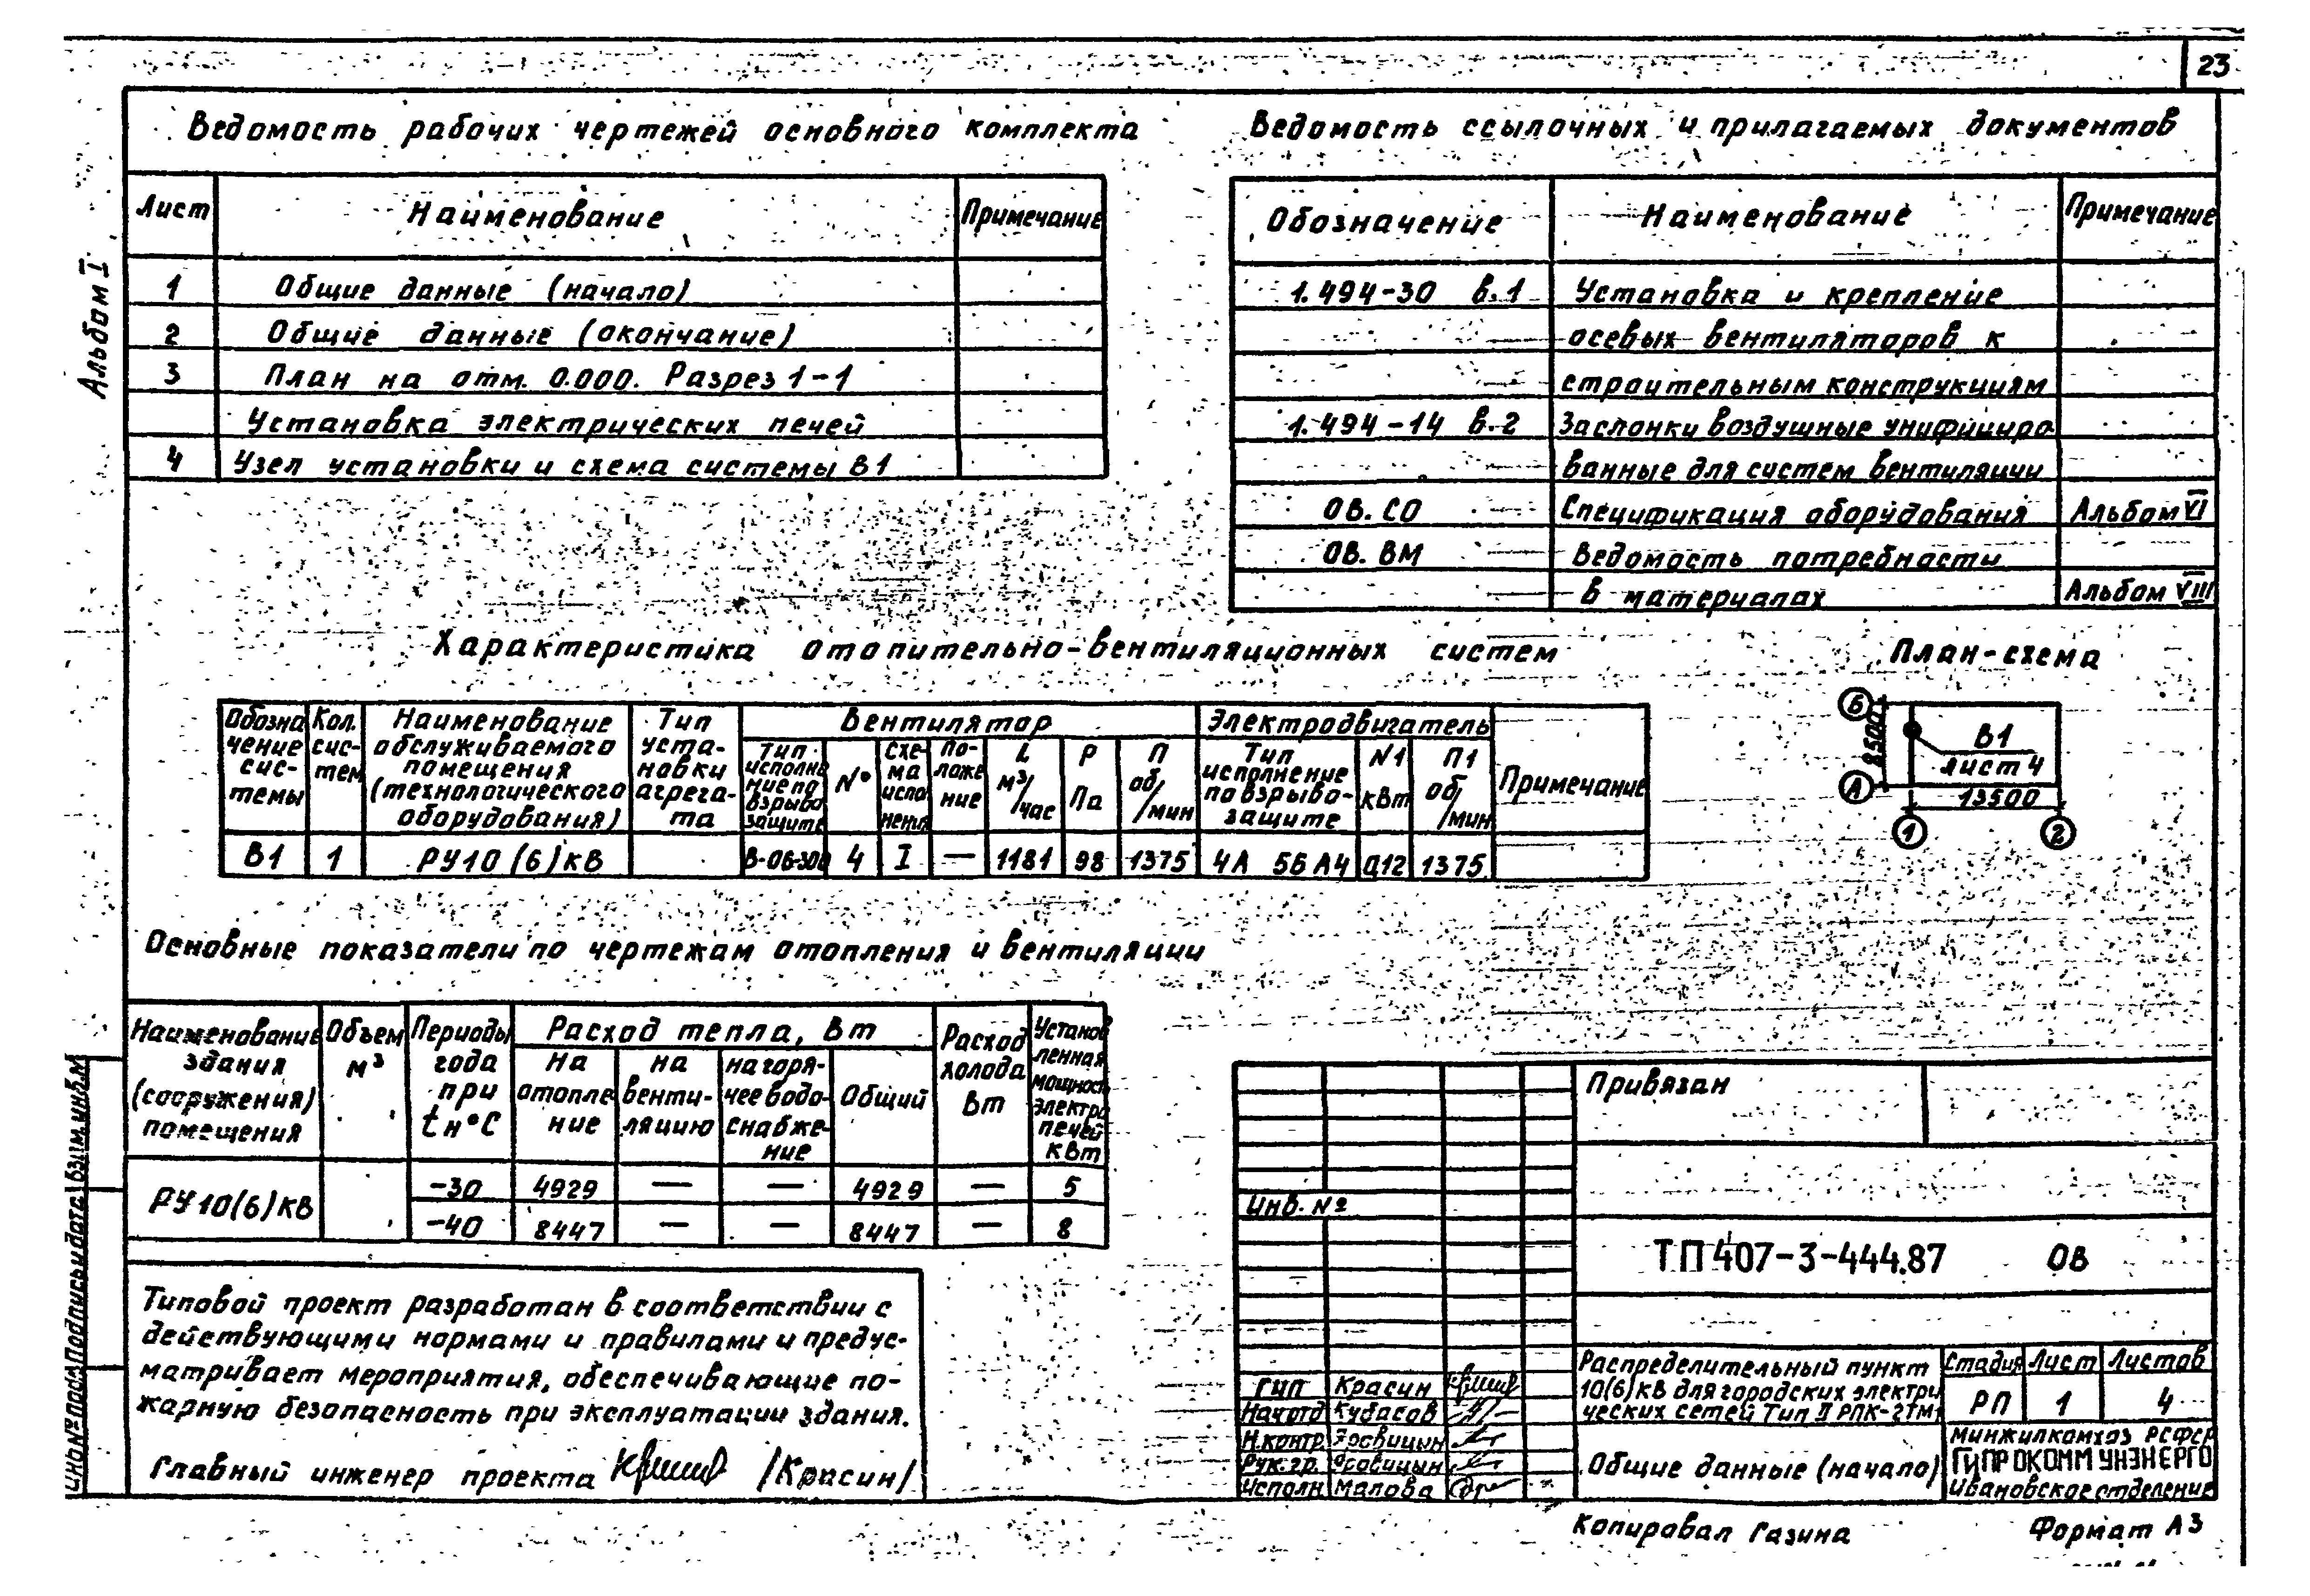 23
Альбом I
Ведомость рабочих чертежей основного комплекта
Лист Наименование Примечание
1 Общие данные (начало)
2 Общие данные (окончание)
3 План на отм. 0.000. Разрез 1-1
Установка электрических печей
4 Узел установки и схема системы В1
Ведомость ссылочных и прилагаемых документов
Обозначение Наименование Примечание
1.494-30 в.1 Установка и крепление
осевых вентиляторов к
строительным конструкциям
1.494-14 в.2 Заслонки воздушные унифициро
ванные для систем вентиляции
ОВ.СО Спецификация оборудования Альбом VI
ОВ.ВМ Ведомость потребности
в материалах Альбом VIII
Характеристика отопительно-вентиляционных систем
Обозна
чение
сис-
темы
Кол.
сис-
тем
Наименование
обслуживаемого
помещения
(технологического
оборудования)
Тип
уста-
новки
агрега-
та
Вентилятор
Тип
исполне
ние по
взрыво
защите
№
Схе-
ма
испо
нения
По-
ложе
ние
L
м³/
час
Р
Па
П
об
/мин
Электродвигатель
Тип
исполнение
по взрыво-
защите
N1
кВт
П1
об
/мин
Примечание
В1 1 РУ10 (6) кВ В-06-300 4 I — 1181 98 1375 4А 56А4 0,12 1375
План-схема
Б
8500
А
В1
лист 4
13500
1 2
Основные показатели по чертежам отопления и вентиляции
Наименование
здания
(сооружения)
помещения
Объем
м³
Периоды
года
при
tн°С
Расход тепла, Вт
на
отопле
ние
на
венти-
ляцию
на горя-
чее водо-
снабже-
ние
Общий
Расход
холода
Вт
Установ
ленная
мощность
электро
печей
кВт
РУ10(6)кВ
-30 4929 — — 4929 — 5
-40 8447 — — 8447 — 8
Типовой проект разработан в соответствии с
действующими нормами и правилами и предус-
матривает мероприятия, обеспечивающие по-
жарную безопасность при эксплуатации здания.
Главный инженер проекта /Красин/
Инв.№ подл. Подпись и дата Взам.инв.№
Привязан
Инв. №
ТП 407-3-444.87 ОВ
ГИП Красин
Нач.отд Кубасов
Н.контр.
Рук.гр.
Исполн Малова
Распределительный пункт
10(6)кВ для городских электри
ческих сетей Тип II РПК-2ТМ1
Стадия Лист Листов
РП 1 4
Общие данные (начало)
Минжилкомхоз РСФСР
ГИПРОКОММУНЭНЕРГО
Ивановское отделение
Копировал Газина
Формат А3